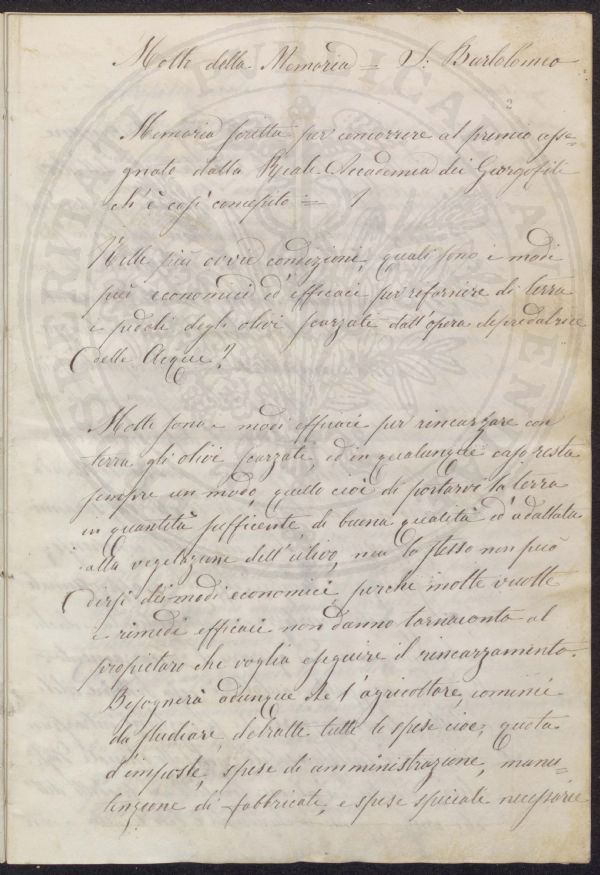 Motto della Memoria = S. Bartolomeo
2
Memoria scritta per concorrere al premio asse-
gnato dalla Reale Accademia dei Georgofili
ch'è così concepito =
Nelle più ovvie condizioni, quali sono i modi
più economici ed efficaci per rifornire di terra
i pedali degli olivi scalzati dall'opera depredatrice
delle Acque?
Molti sono i modi efficaci per rincalzare con
terra gli olivi scalzati, ed in qualunque caso resta
sempre un modo, quello cioè di portarvi la terra
in quantità sufficente di buona qualità ed adattata
alla vegetazione dell'ulivo, ma lo stesso non può
dirsi dei modi economici, perchè molte vuolte
i rimedi efficaci non danno tornaconto al
propietaro che voglia eseguire il rincarzamento.
Bisognerà adunque che l'agricoltore, cominci
da studiare, detratte tutte le spese cioè, quota
d'imposte, spese di amministrazione, manu-
tenzione di fabbricati, e spese speciali necessarie